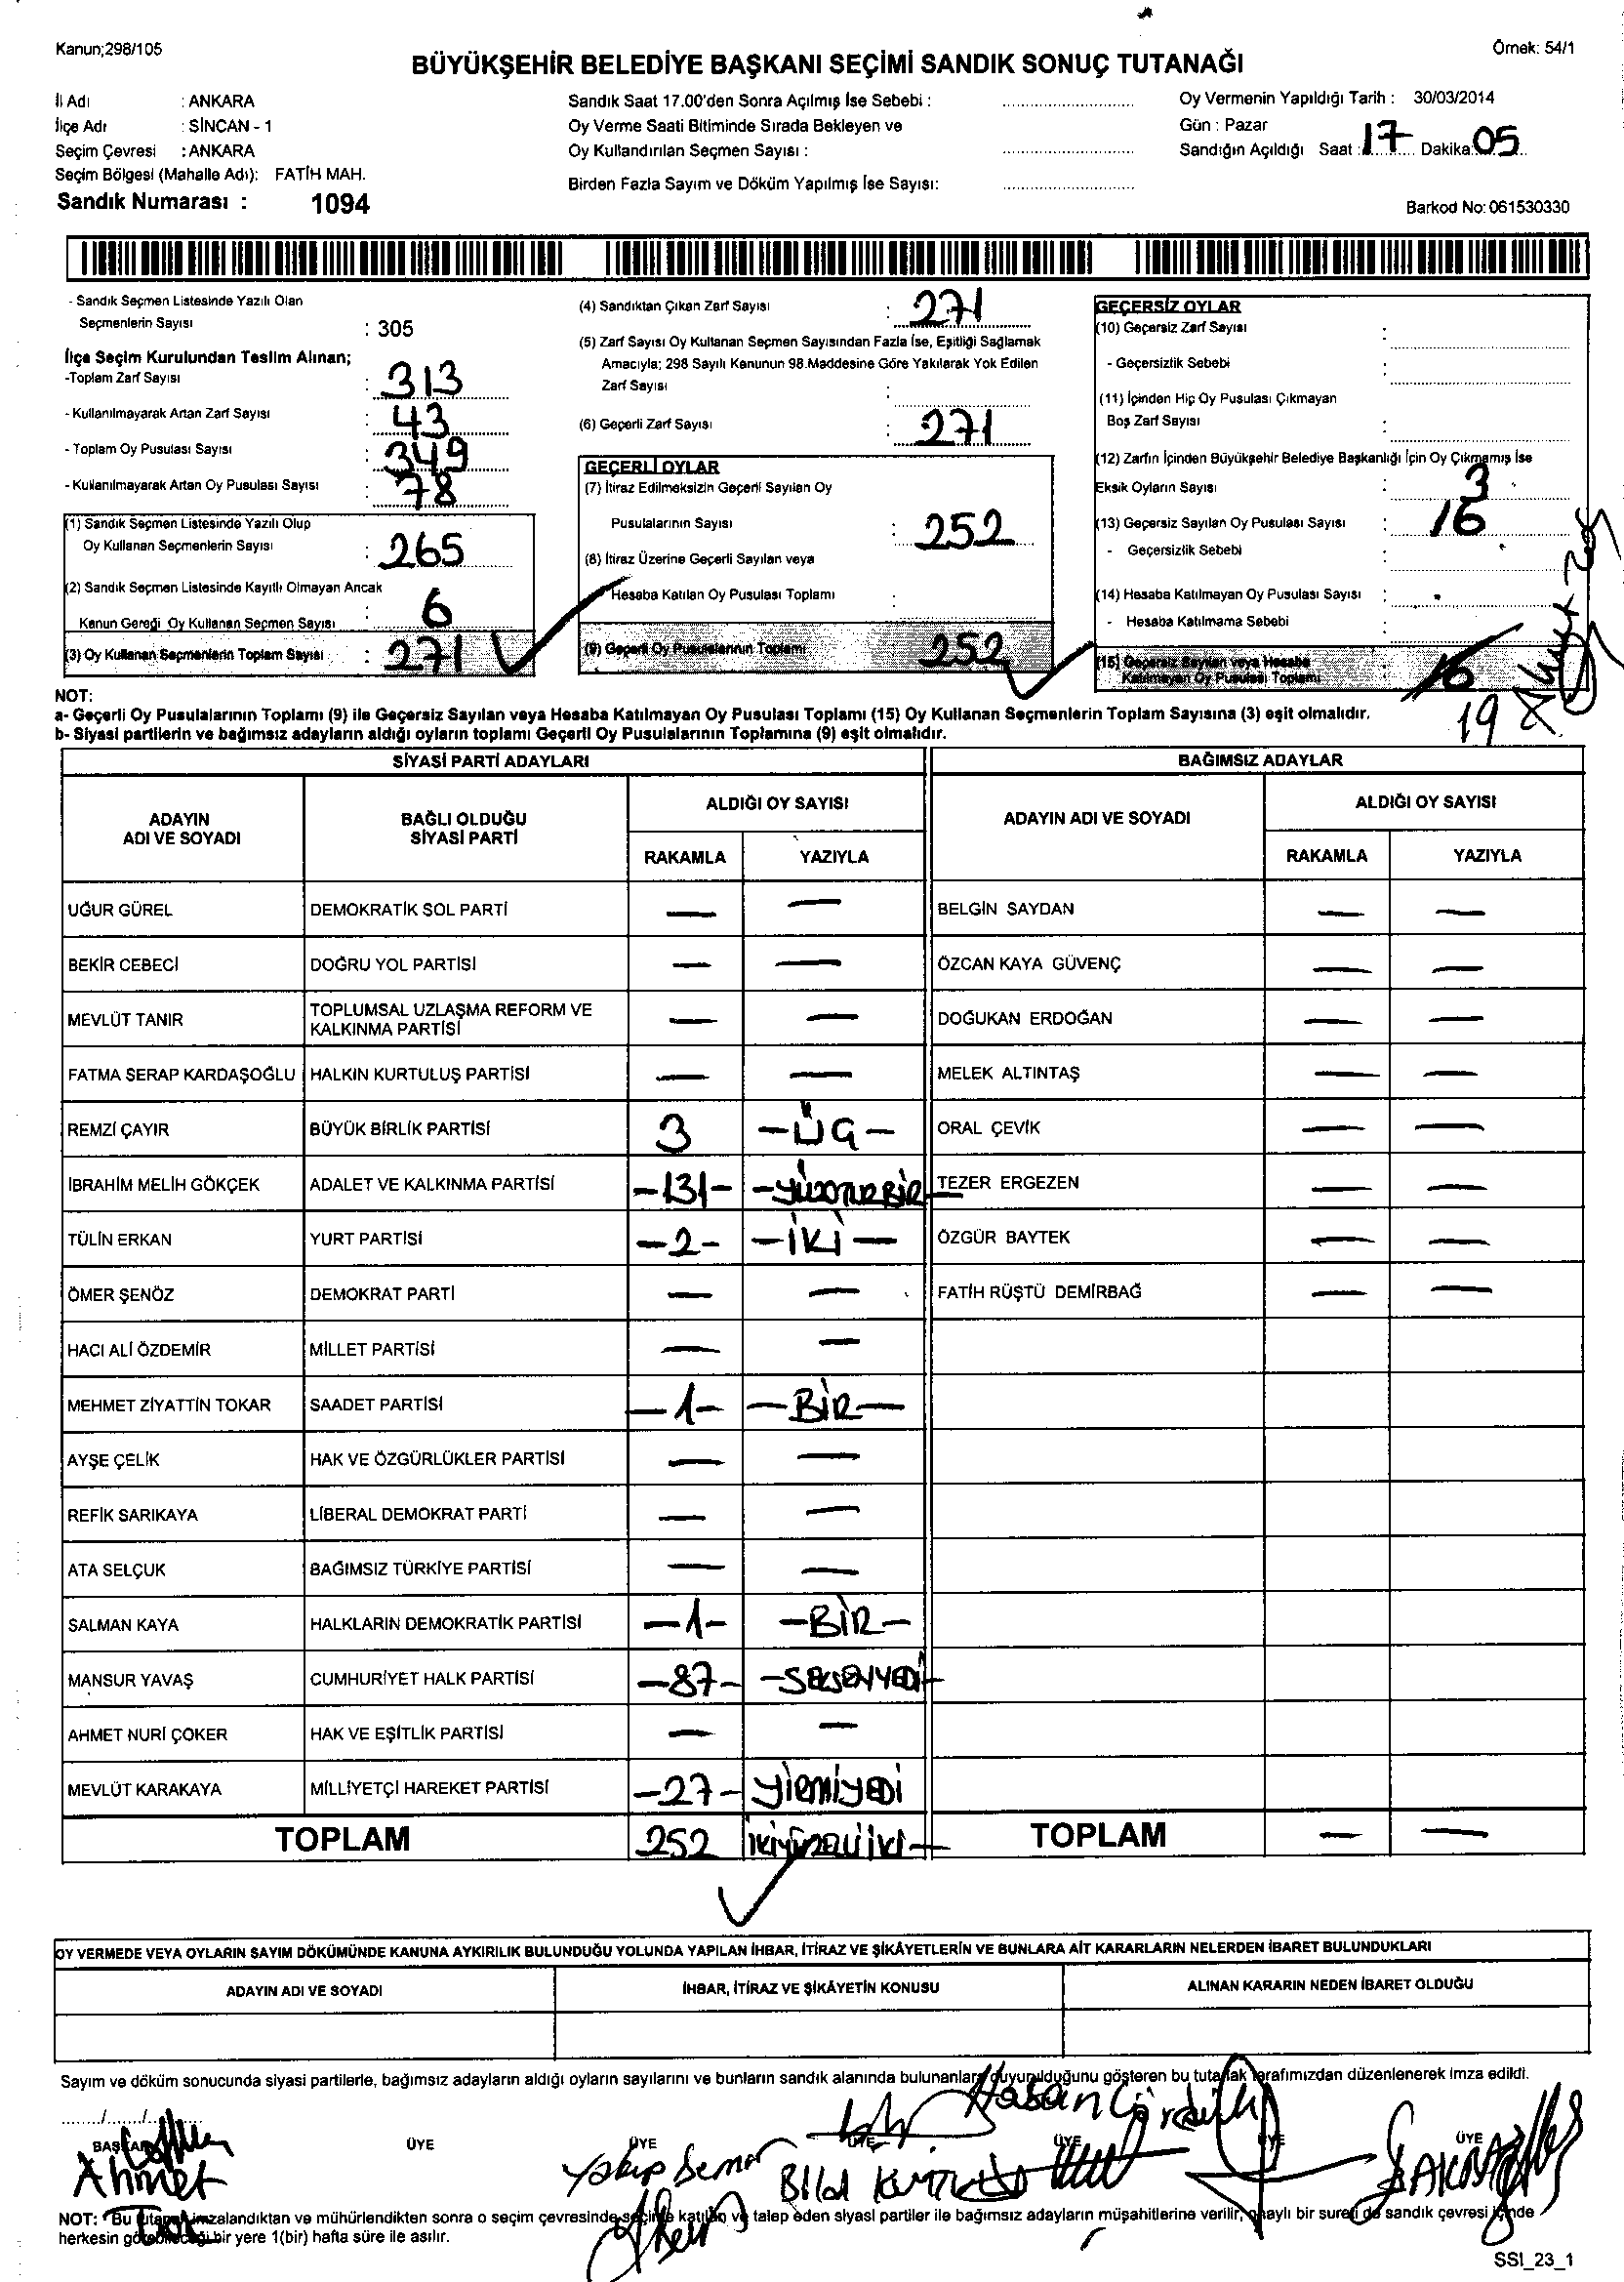 Kanun;298/105
Örnek: 54/1
BÜYÜKŞEHİR BELEDİYE BAŞKANI SEÇİMİ SANDIK SONUÇ TUTANAĞI
İl Adı : ANKARA
İlçe Adı : SİNCAN - 1
Seçim Çevresi : ANKARA
Seçim Bölgesi (Mahalle Adı): FATİH MAH.
Sandık Numarası : 1094
Sandık Saat 17.00'den Sonra Açılmış İse Sebebi :
Oy Verme Saati Bitiminde Sırada Bekleyen ve
Oy Kullandırılan Seçmen Sayısı :
Birden Fazla Sayım ve Döküm Yapılmış İse Sayısı:
Oy Vermenin Yapıldığı Tarih : 30/03/2014
Gün : Pazar
Sandığın Açıldığı Saat : 17 Dakika: 05
Barkod No: 061530330
- Sandık Seçmen Listesinde Yazılı Olan
Seçmenlerin Sayısı : 305
İlçe Seçim Kurulundan Teslim Alınan;
-Toplam Zarf Sayısı : 313
- Kullanılmayarak Artan Zarf Sayısı : 43
- Toplam Oy Pusulası Sayısı : 349
- Kullanılmayarak Artan Oy Pusulası Sayısı : 78
(1) Sandık Seçmen Listesinde Yazılı Olup
Oy Kullanan Seçmenlerin Sayısı : 265
(2) Sandık Seçmen Listesinde Kayıtlı Olmayan Ancak
Kanun Gereği Oy Kullanan Seçmen Sayısı : 6
(3) Oy Kullanan Seçmenlerin Toplam Sayısı : 271
(4) Sandıktan Çıkan Zarf Sayısı : 271
(5) Zarf Sayısı Oy Kullanan Seçmen Sayısından Fazla İse, Eşitliği Sağlamak
Amacıyla; 298 Sayılı Kanunun 98.Maddesine Göre Yakılarak Yok Edilen
Zarf Sayısı :
(6) Geçerli Zarf Sayısı : 271
GEÇERLİ OYLAR
(7) İtiraz Edilmeksizin Geçerli Sayılan Oy
Pusulalarının Sayısı : 252
(8) İtiraz Üzerine Geçerli Sayılan veya
Hesaba Katılan Oy Pusulası Toplamı :
(9) Geçerli Oy Pusulalarının Toplamı 252
GEÇERSİZ OYLAR
(10) Geçersiz Zarf Sayısı :
- Geçersizlik Sebebi :
(11) İçinden Hiç Oy Pusulası Çıkmayan
Boş Zarf Sayısı :
(12) Zarfın İçinden Büyükşehir Belediye Başkanlığı İçin Oy Çıkmamış İse
Eksik Oyların Sayısı : 3
(13) Geçersiz Sayılan Oy Pusulası Sayısı : 16
- Geçersizlik Sebebi :
(14) Hesaba Katılmayan Oy Pusulası Sayısı :
- Hesaba Katılmama Sebebi :
(15) Geçersiz Sayılan veya Hesaba
Katılmayan Oy Pusulası Toplamı 16
19
NOT:
a- Geçerli Oy Pusulalarının Toplamı (9) ile Geçersiz Sayılan veya Hesaba Katılmayan Oy Pusulası Toplamı (15) Oy Kullanan Seçmenlerin Toplam Sayısına (3) eşit olmalıdır.
b- Siyasi partilerin ve bağımsız adayların aldığı oyların toplamı Geçerli Oy Pusulalarının Toplamına (9) eşit olmalıdır.
SİYASİ PARTİ ADAYLARI BAĞIMSIZ ADAYLAR
ADAYIN ADI VE SOYADI BAĞLI OLDUĞU SİYASİ PARTİ ALDIĞI OY SAYISI ADAYIN ADI VE SOYADI ALDIĞI OY SAYISI
RAKAMLA YAZIYLA RAKAMLA YAZIYLA
UĞUR GÜREL DEMOKRATİK SOL PARTİ — — BELGİN SAYDAN — —
BEKİR CEBECİ DOĞRU YOL PARTİSİ — — ÖZCAN KAYA GÜVENÇ — —
MEVLÜT TANIR TOPLUMSAL UZLAŞMA REFORM VE KALKINMA PARTİSİ — — DOĞUKAN ERDOĞAN — —
FATMA SERAP KARDAŞOĞLU HALKIN KURTULUŞ PARTİSİ — — MELEK ALTINTAŞ — —
REMZİ ÇAYIR BÜYÜK BİRLİK PARTİSİ 3 -ÜÇ- ORAL ÇEVİK — —
İBRAHİM MELİH GÖKÇEK ADALET VE KALKINMA PARTİSİ -131- -YÜZOTUZBİR- TEZER ERGEZEN — —
TÜLİN ERKAN YURT PARTİSİ -2- -İKİ- ÖZGÜR BAYTEK — —
ÖMER ŞENÖZ DEMOKRAT PARTİ — — FATİH RÜŞTÜ DEMİRBAĞ — —
HACI ALİ ÖZDEMİR MİLLET PARTİSİ — —
MEHMET ZİYATTİN TOKAR SAADET PARTİSİ -1- -BİR-
AYŞE ÇELİK HAK VE ÖZGÜRLÜKLER PARTİSİ — —
REFİK SARIKAYA LİBERAL DEMOKRAT PARTİ — —
ATA SELÇUK BAĞIMSIZ TÜRKİYE PARTİSİ — —
SALMAN KAYA HALKLARIN DEMOKRATİK PARTİSİ -1- -BİR-
MANSUR YAVAŞ CUMHURİYET HALK PARTİSİ -87- -SEKSENYEDİ-
AHMET NURİ ÇOKER HAK VE EŞİTLİK PARTİSİ — —
MEVLÜT KARAKAYA MİLLİYETÇİ HAREKET PARTİSİ -27- YİRMİYEDİ
TOPLAM 252 İKİYÜZELLİİKİ- TOPLAM — —
OY VERMEDE VEYA OYLARIN SAYIM DÖKÜMÜNDE KANUNA AYKIRILIK BULUNDUĞU YOLUNDA YAPILAN İHBAR, İTİRAZ VE ŞİKÂYETLERİN VE BUNLARA AİT KARARLARIN NELERDEN İBARET BULUNDUKLARI
ADAYIN ADI VE SOYADI İHBAR, İTİRAZ VE ŞİKÂYETİN KONUSU ALINAN KARARIN NEDEN İBARET OLDUĞU
Sayım ve döküm sonucunda siyasi partilerle, bağımsız adayların aldığı oyların sayılarını ve bunların sandık alanında bulunanlara duyurulduğunu gösteren bu tutanak tarafımızdan düzenlenerek imza edildi.
....../....../......
BAŞKAN ÜYE ÜYE ÜYE ÜYE ÜYE ÜYE
Ahmet
Hasan
Yakup
Bilal
NOT: Bu tutanak imzalandıktan ve mühürlendikten sonra o seçim çevresinde seçime katılan ve talep eden siyasi partiler ile bağımsız adayların müşahitlerine verilir, onaylı bir sureti de sandık çevresi içinde
herkesin görebileceği bir yere 1(bir) hafta süre ile asılır.
SSI_23_1